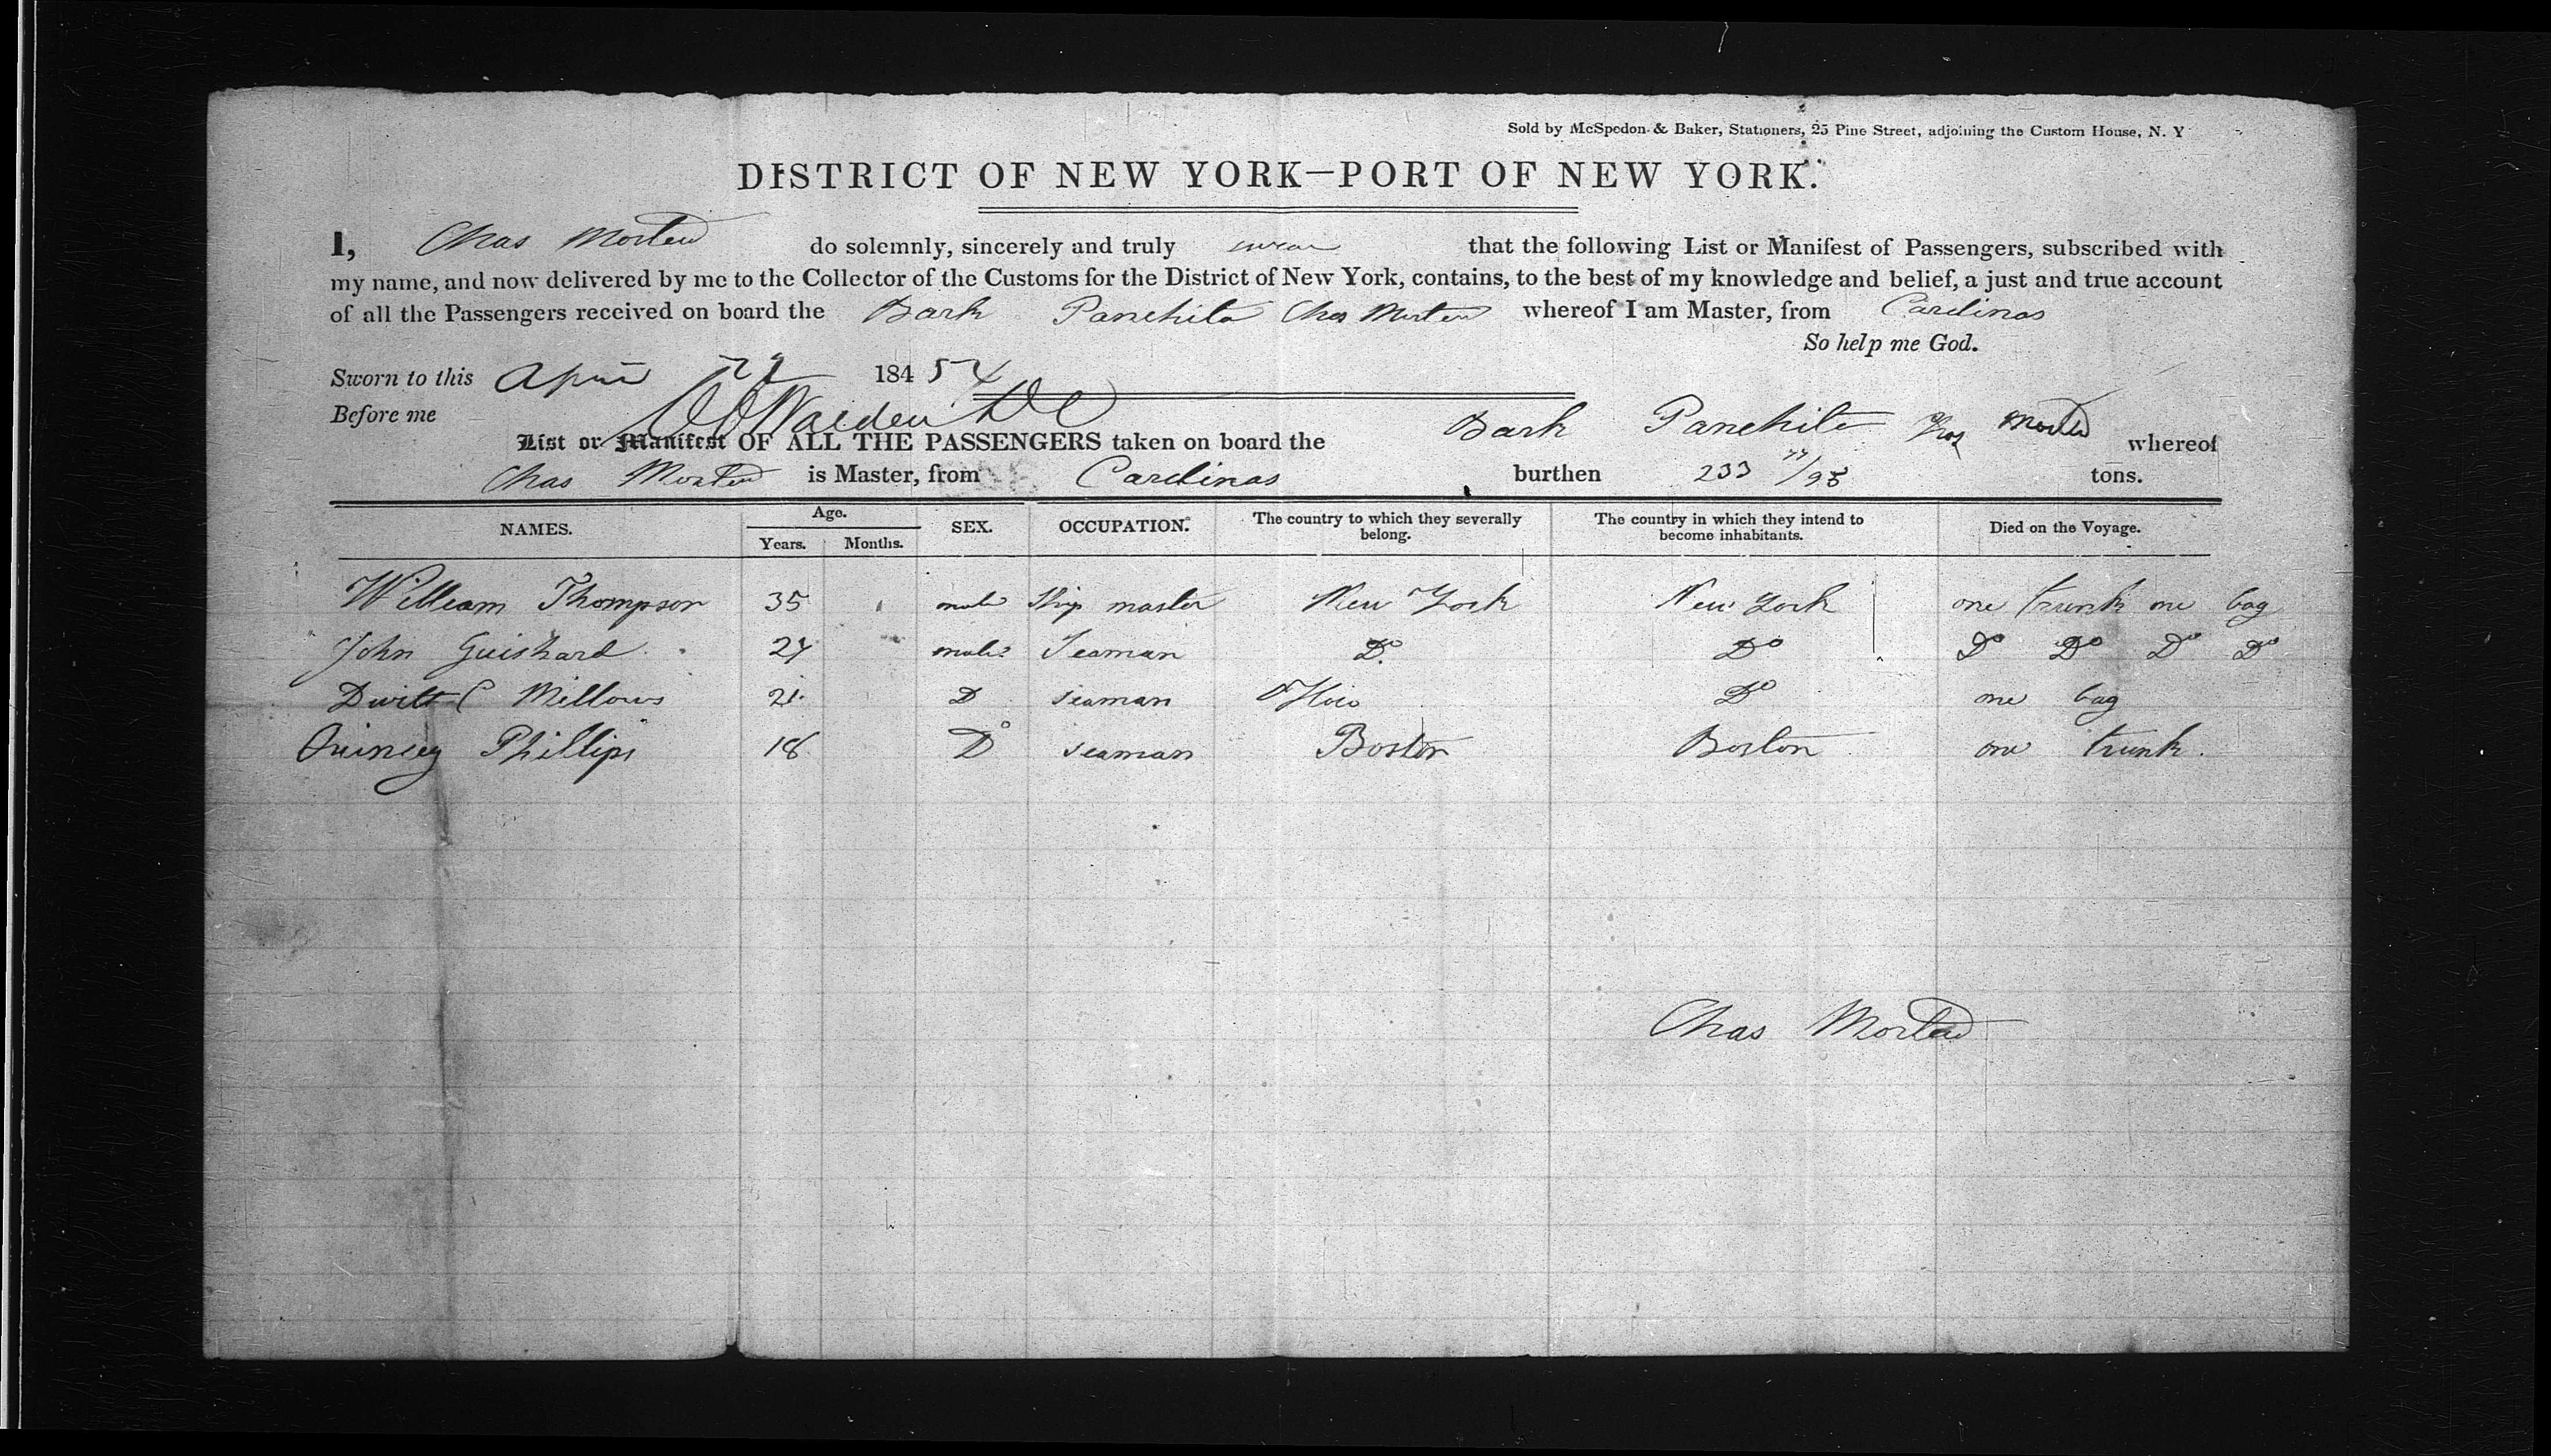 Sold by McSpedon & Baker, Stationers, 25 Pine Street, adjoining the Custom House, N. Y
DISTRICT OF NEW YORK—PORT OF NEW YORK.
I, Chas Morten do solemnly, sincerely and truly swear that the following List or Manifest of Passengers, subscribed with
my name, and now delivered by me to the Collector of the Customs for the District of New York, contains, to the best of my knowledge and belief, a just and true account
of all the Passengers received on board the Bark Panchita Chas Morten whereof I am Master, from Cardinas
So help me God.
Sworn to this April 22 184 54
Before me
List or Manifest OF ALL THE PASSENGERS taken on board the Bark Panchita Morten whereof
Chas Morten is Master, from Cardinas burthen 233 /95 tons.
NAMES. Age. Years. Months. SEX. OCCUPATION. The country to which they severally belong. The country in which they intend to become inhabitants. Died on the Voyage.
William Thompson 35 male Ship master New York New York one trunk one bag
John Guishard 24 male Seaman Do Do Do Do Do Do
Dwitt C Mellows 21 D seaman OHio Do one bag
Quincey Phillips 18 Do seaman Boston Boston one trunk.
Chas Morten